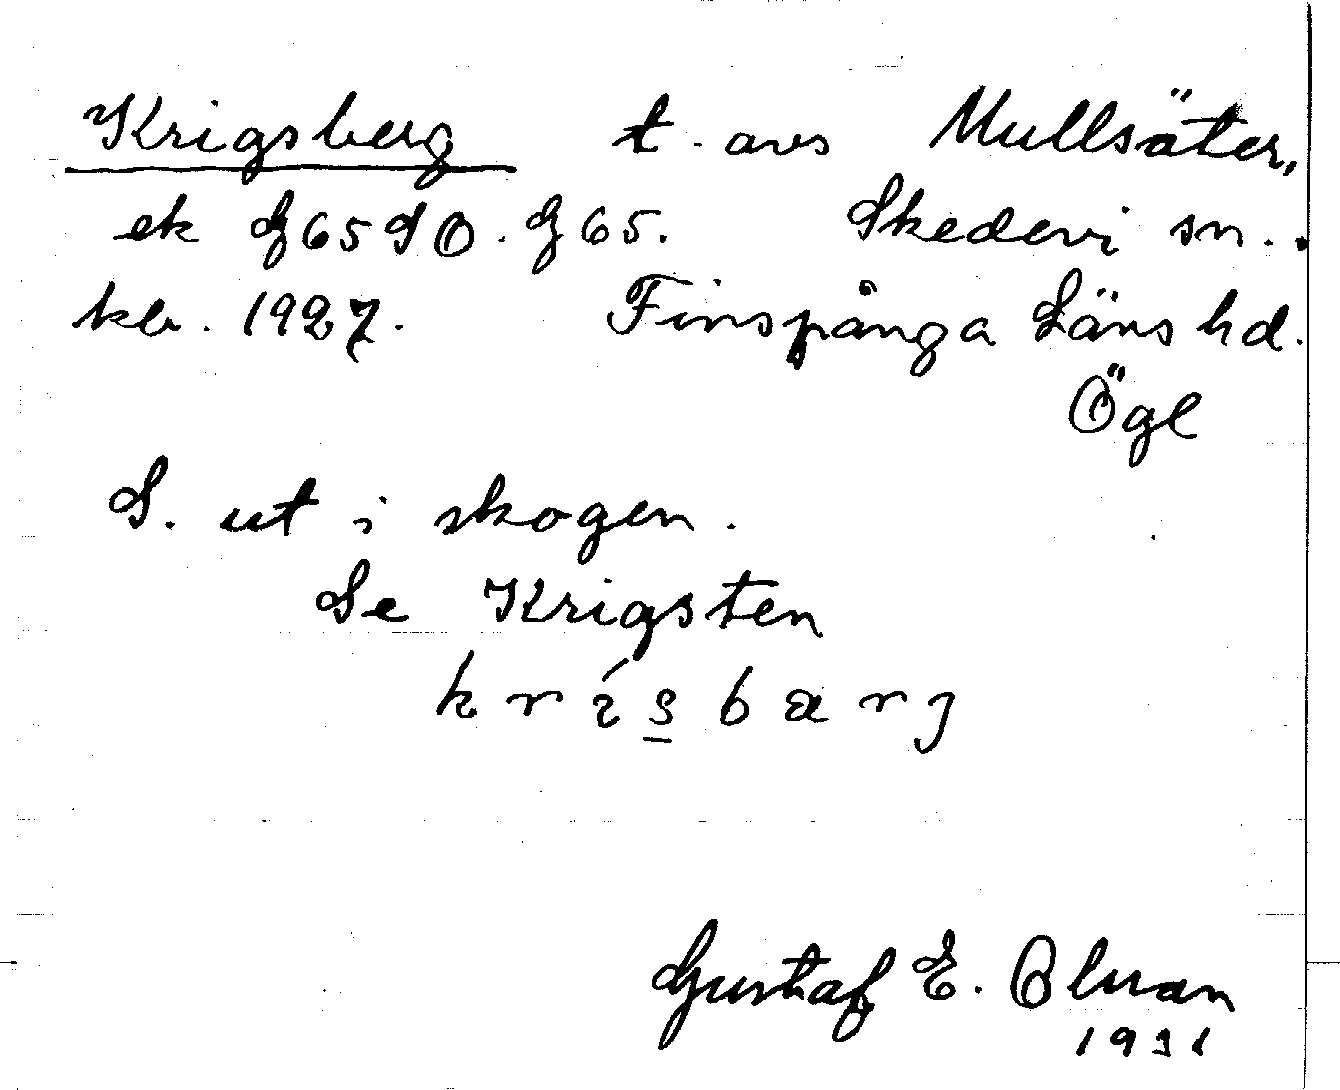 Krigsberg t. avs Mullsäter,
ek G65SO. G65. Skedevi sn.
kb. 1927. Finspånga Läns hd.
Ögl
S. ut i skogen.
Se Krigsten
krisbarj
Gustaf E. Olman
1931